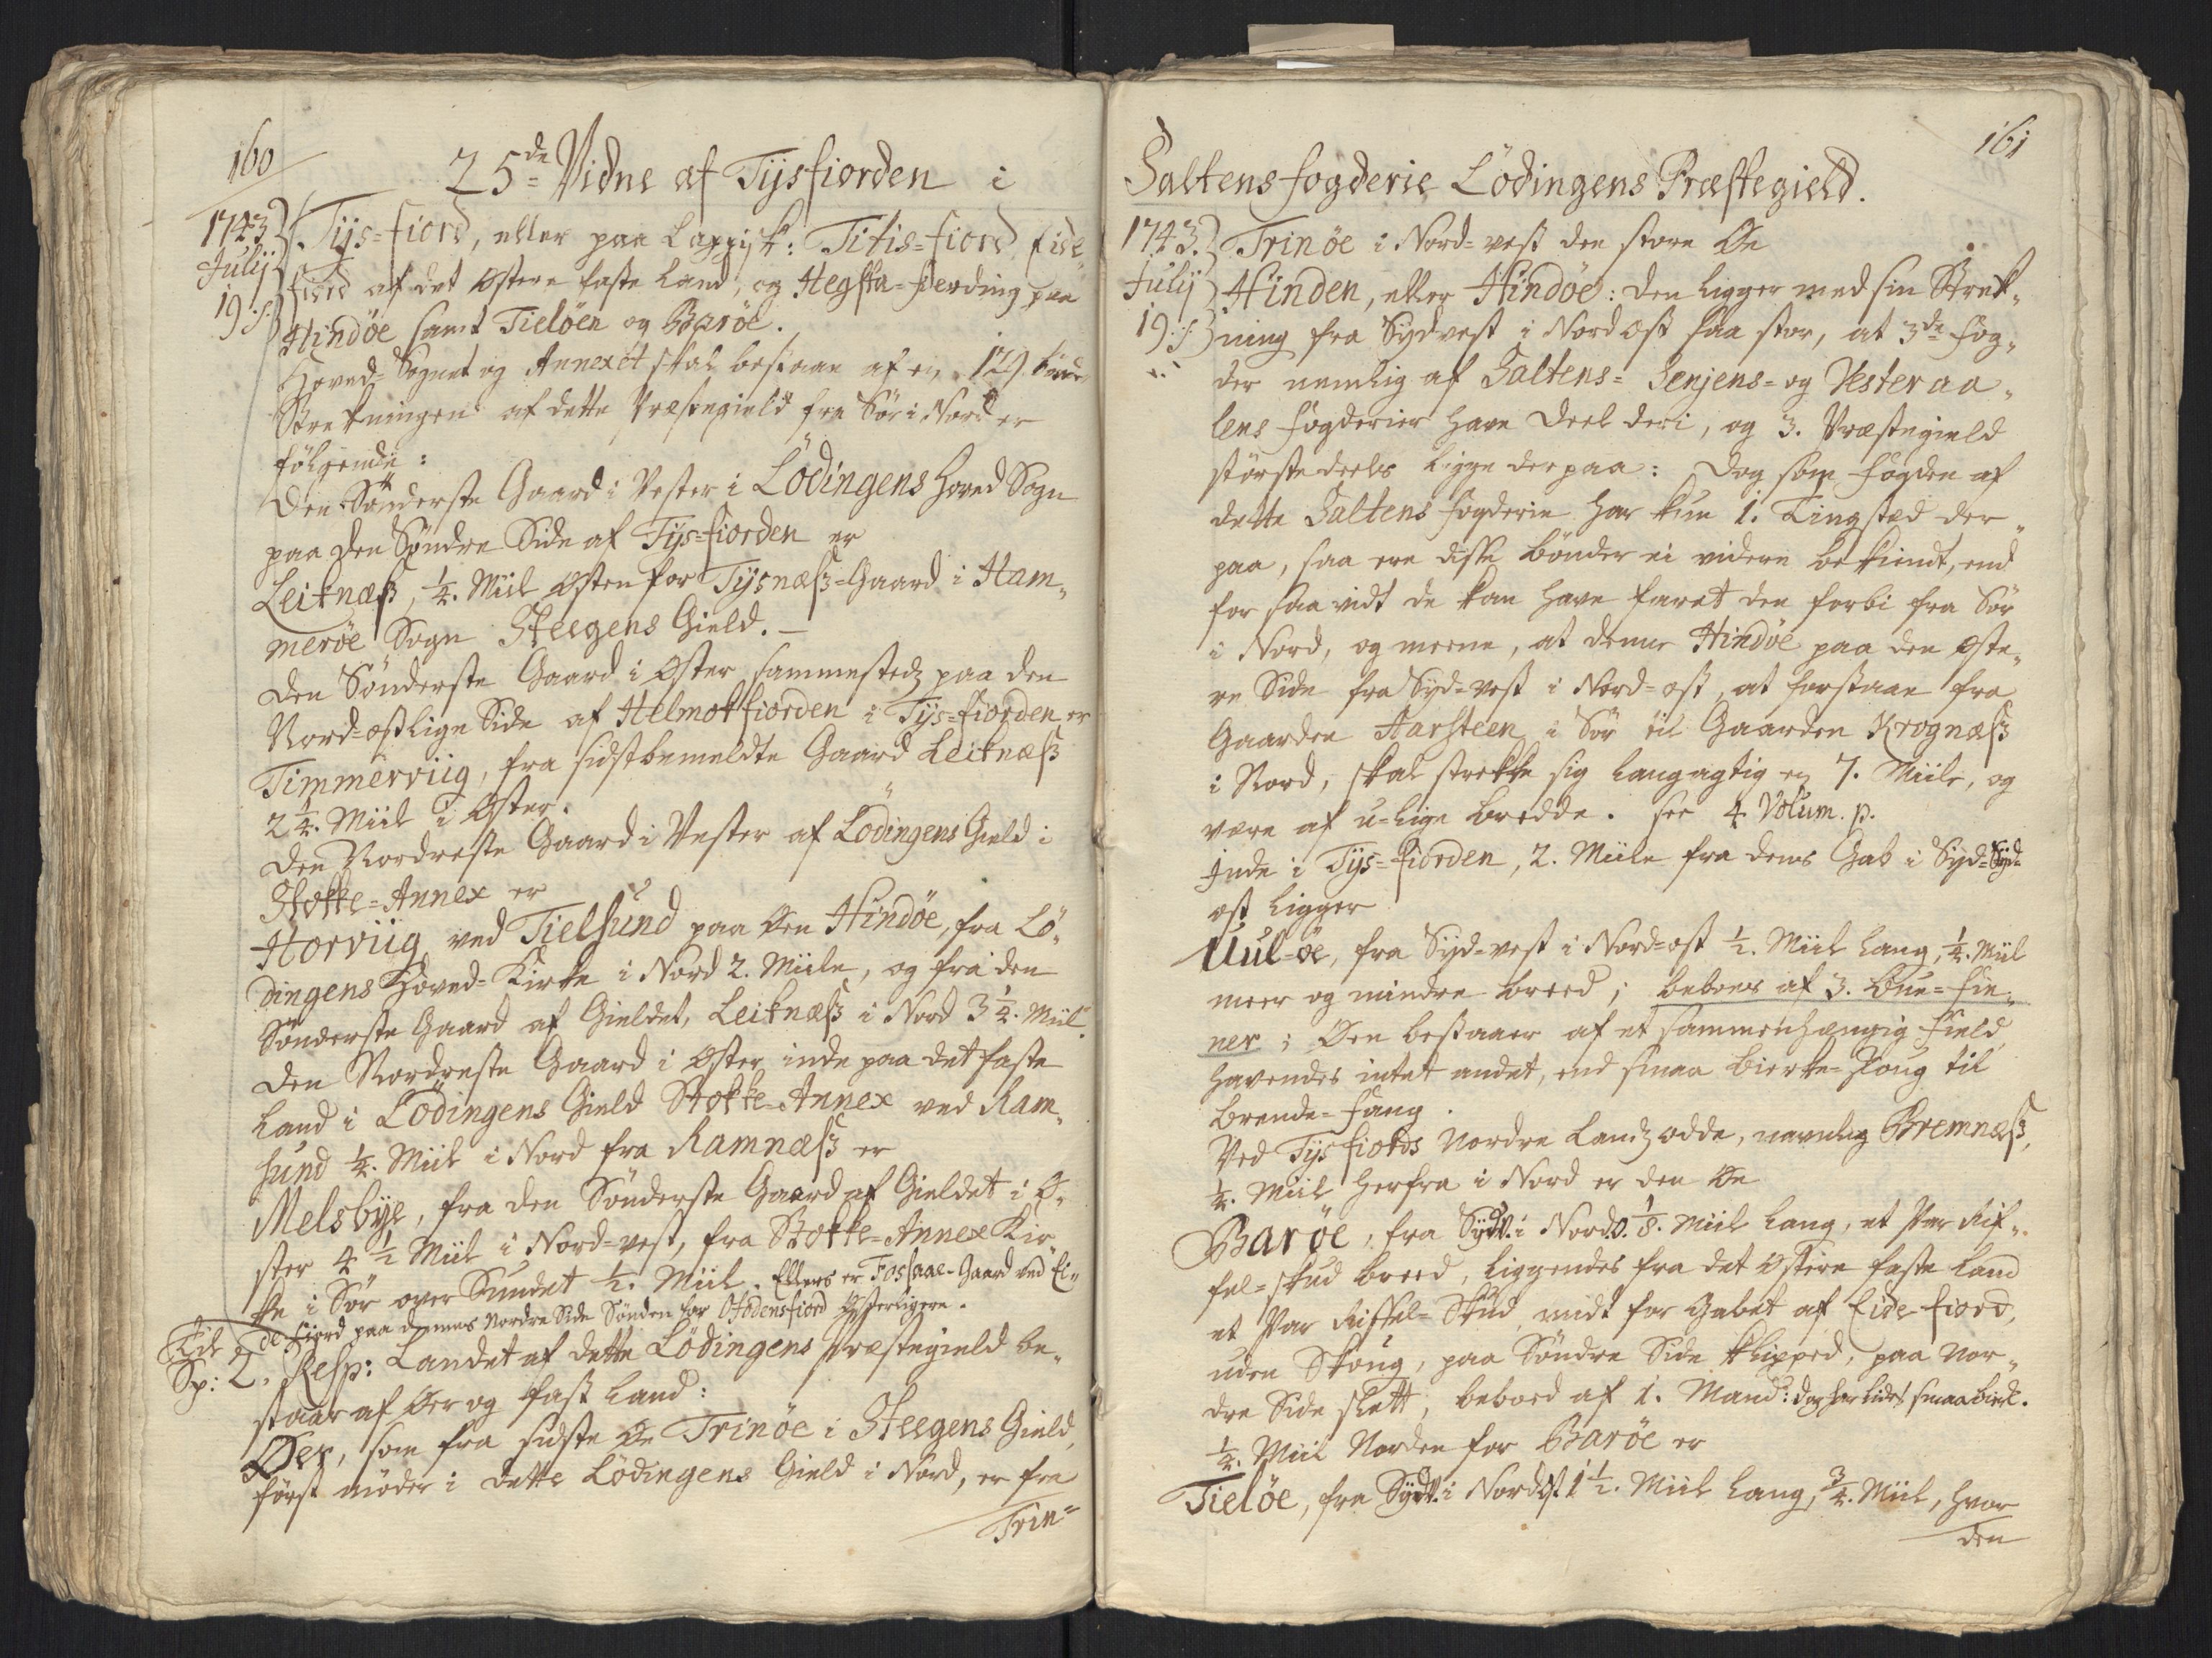 160
25de Vidne af Tysfiorden i
1743
Julij
19:
Tys=fiord, eller paa Lappisk: Titis=fiord, Eide=
fiord af det Østere faste Land, og Hegsta=fierding paa
Hindøe samt Tieløen og Barøe.
Hoved=Sognet og Annexet skal bestaae af en 129 bønder
Strekningen af dette Præstegield fra Sør i Nord er
følgende:
Den Sønderste Gaard i Vester i Lødingens Hoved Sogn
paa den Søndre Side af Tys=fiorden er
Leiknæss, 1/4. Miil Østen for Tysnæss=Gaard i Ham=
merøe Sogn Steegens Gield. —
Den Sønderste Gaard i Øster sammestedz paa den
Nord=østlige Side af Helmokfiorden i Tys=fiorden er
Timmerviig, fra sidstbemeldte Gaard Leiknæss
2 1/4. Miil i Øster.
Den Nordreste Gaard i Vester af Lødingens Gield i
Stokke=Annex er
Horviig ved Tielsund paa Øen Hindøe, fra Lø=
dingens Hoved=Kirke i Nord 2. Miile, og fra den
Sønderste Gaard af Gieldet, Leiknæss i Nord 3 1/4. Miil.
Den Nordreste Gaard i Øster inde paa det faste
Land i Lødingens Gield Stokke=Annex ved Ram=
sund 1/4. Miil i Nord fra Ramnæss er
Melsbye, fra den Sønderste Gaard af Gieldet i Ø=
ster 4 1/2 Miil i Nord=vest, fra Stokke=Annex Kir=
ke i Sør over Sundet 1/2. Miil. Ellers er Fossaae-Gaard ved Ei=
de fiord paa dennes Nordre Side Sønden for Ofodensfiord Østerligere.
Sp: 2. Resp: Landet af dette Lødingens Præstegield be=
staar af Øer og fast Land:
Øer, som fra sidste Øe Trinøe i Steegens Gield
først møder i dette Lødingens Gield i Nord, er fra
Trin=
161
Saltens fogderie Lødingens Præstegield.
1743.
Julij
19:
Trinøe i Nord=vest den store Øe
Hinden, eller Hindøe: den ligger med sin Strek=
ning fra Sydvest i Nordost saa stor, at 3de fog=
der nemlig af Saltens= Senjens= og Vesteraa=
lens fogderier have Deel deri, og 3. Præstegield
størstedeels ligge derpaa: Dog som fogden af
dette Saltens fogderie har kun 1. Tingsted der=
paa, saa ere disse bønder ei videre bekiendt, end
for saavidt de kan have faret den forbi fra Sør
i Nord, og meene, at denne Hindøe paa den Øste=
re Side fra Syd=vest i Nord=ost, at forstaae fra
Gaarden Aarsteen i Sør til Gaarden Krognæss
i Nord, skal strekke sig langagtig en 7. Miile, og
være af u=lige bredde. see 4. Volum. p.
Inde i Tys=fiorden, 2. Miile fra dens Gab i Syd=Syd=
ost ligger
Uul=øe, fra Syd=vest i Nord=ost 1/2. Miil lang, 1/4. Miil
meer og mindre breed; beboes af 3. Bue=fin=
ner; Øen bestaaer af et sammenhængig field,
havendes intet andet, end smaa birke=skoug til
brende=fang.
Ved Tysfiords Nordre Landz odde, navnlig Bremnæss,
1/4. Miil herfra i Nord er den Øe
Barøe, fra Sydv. i Nordo. 1/8. Miil lang, et Par Rif=
fel=skud breed, liggendes fra det Østere faste Land
et Par Riffel=Skud, midt for Gabet af Eide-fiord,
uden Skoug, paa Søndre Side klipped, paa Nor=
dre Side slett, beboed af 1. Mand: dog har lidet smaa birk.
1/4. Miil Norden for Barøe er
Tieløe, fra Sydv. i Nordost 1 1/2. Miil lang, 3/4. Miil, hvor
den